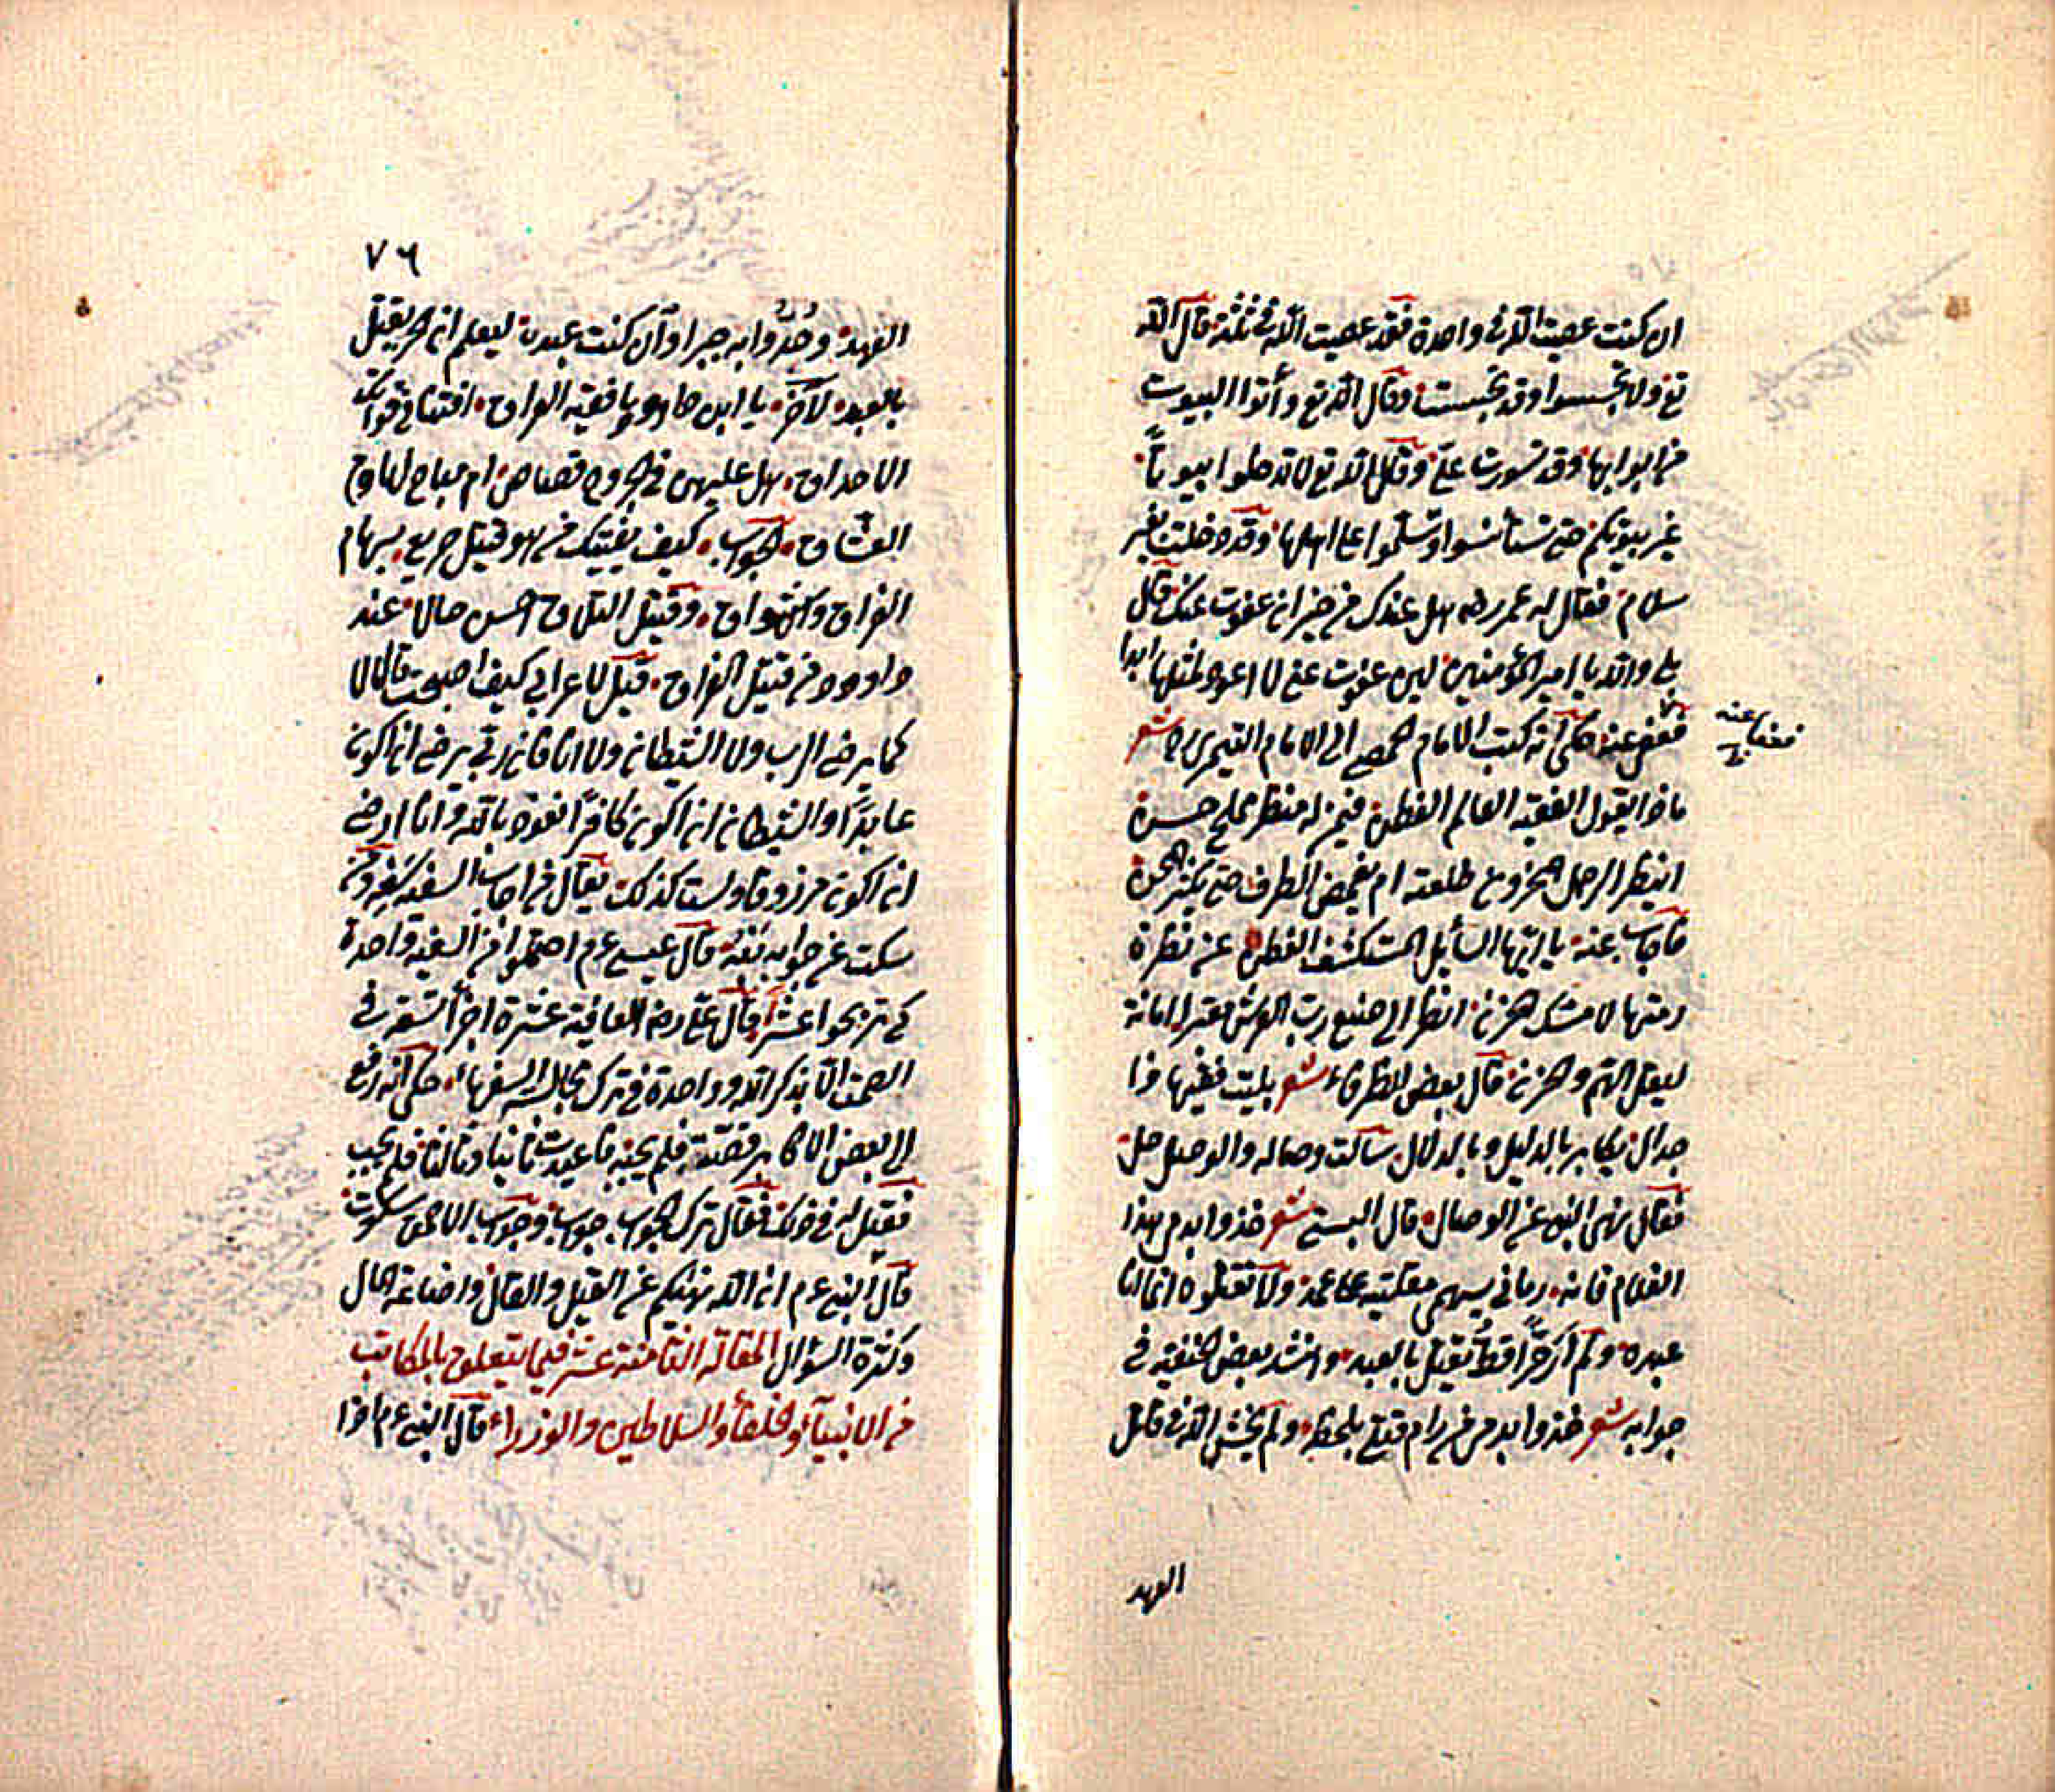 ان كنت عصيت الله فى واحدة فقد عصيت الله فى ثلثة قال الله
تع ولا تجسسوا وقد تجسست وقال الله تع وأتوا البيوت
من ابوابها وقد تسورت على وقال الله تع لا تدخلوا بيوتاً
غير بيوتكم حتى تستأنسوا وتسلموا على اهلها وقد دخلت بغير
سلام فقال له عمر رضه هل عندك من خير ان عفوت عنك قال
بلى والله يا امير المؤمنين لين عفوت عنى لا اعود لمثلها ابدا
فعفى عنه حكى انه كتب الامام الحمصى الى الامام شعر
فعفا عنه
ماذا يقول الفقيه العالم الفطن فيمن له منظر مليح حسن
اينظر الرجل طلعته ام يغمض الطرف حتى يكثر الحزن
فاجاب عنه يا ايها السائل المستكشف الفطن عن نظرة
الحزن انظر الى صنيع رب العرش معتبرا
الهم والحزن قال بعض الظرفاء شعر بليت فقيها ذا
جدال يكابر بالدليل وبالدلال سالت وصاله والوصل حل
فقال نهى النبى عن الوصال قال البستى شعر خذوا بدمى هذا
الغلام فانه رمانى بسهمى مقلتيه على عمد ولا تقتلوه انما انا
عبده ولم أر حرّاً قط يقتل بالعبد وانشد بعض الحنفية فى
جوابه شعر خذوا بدمى من رام قتلى بلحظه ولم يخش الله فى قاتل
العهد
٧٦
العهد وخذوا به جبرا وان كنت عبده ليعلم ان الحر يقتل
بالعبد لآخر يا ابن داود يا فقيه العراق افتنا فى قواتل
الاحداق هل عليهن فى الجروح قصاص ام مباح لها دم
العشاق الجواب كيف يفتيك من هو قتيل صريع بسهام
الفراق والاشواق وقتيل التلاق احسن حالا عند
داود من قتيل الفراق قيل لاعرابى كيف اصبحت قال لا
كما يرضى الرب ولا الشيطان ولا انا فان ربى يرضى ان اكون
عابدًا والشيطان ان اكون كافرًا نعوذ بالله وانا ارضى
ان اكون مرزوقا ولست كذلك يقال من اجاب السفيه سفه ومن
سكت عن جوابه نقه قال عيسى عم احتملوا من السفيه واحدة
كى تربحوا عشرا قال على رضه العافية عشرة اجزأ تسعة فى
الصمت الا بذكر الله وواحدة فى ترك مجالسة السفهاء حكى انه رفع
الى بعض الاكابر قصة فلم يجبه فاعيدت ثانيا وثالثا فلم يجب
فقيل له فى ذلك فقال ترك الجواب جواب وجواب الاحمق سكوت
قال النبى عم ان الله نهيكم عن القيل والقال واضاعة المال
وكثرة السؤال المقالة الثامنة عشر فيما يتعلق بالمكاتب
من الانبيآء والخلفأ والسلاطين والوزراء قال النبى عم اذا